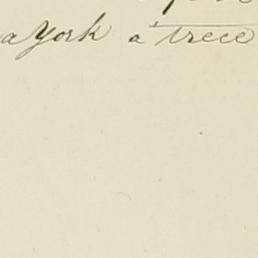 a York á trece